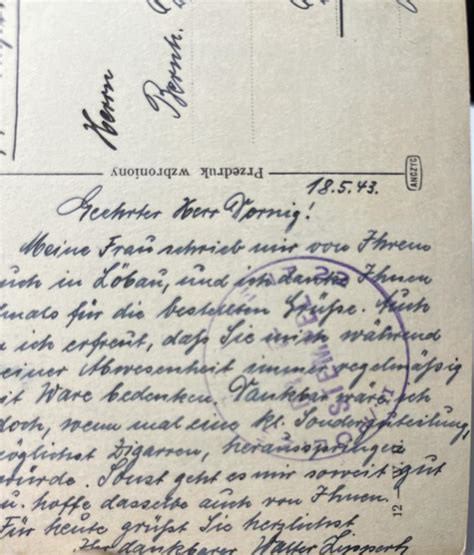 Herrn
Bernh.
Przedruk wzbroniony
ANCZYC
18.5.43.
Geehrter Herr Dornig!
Meine Frau schrieb mir von Ihrem
uch in Löbau, und ich danke Ihnen
mals für die bestellten Grüße. Auch
ich erfreut, daß Sie mich während
einer Abwesenheit immer regelmäßig
it Ware bedenken. Dankbar wäre ich
doch, wenn mal eine kl. Sonderzuteilung,
möglichst Zigarren, herausspringen
würde. Sonst geht es mir soweit gut
u. hoffe dasselbe auch von Ihnen.
Für heute grüßt Sie herzlichst
Ihr dankbarer Walter
12